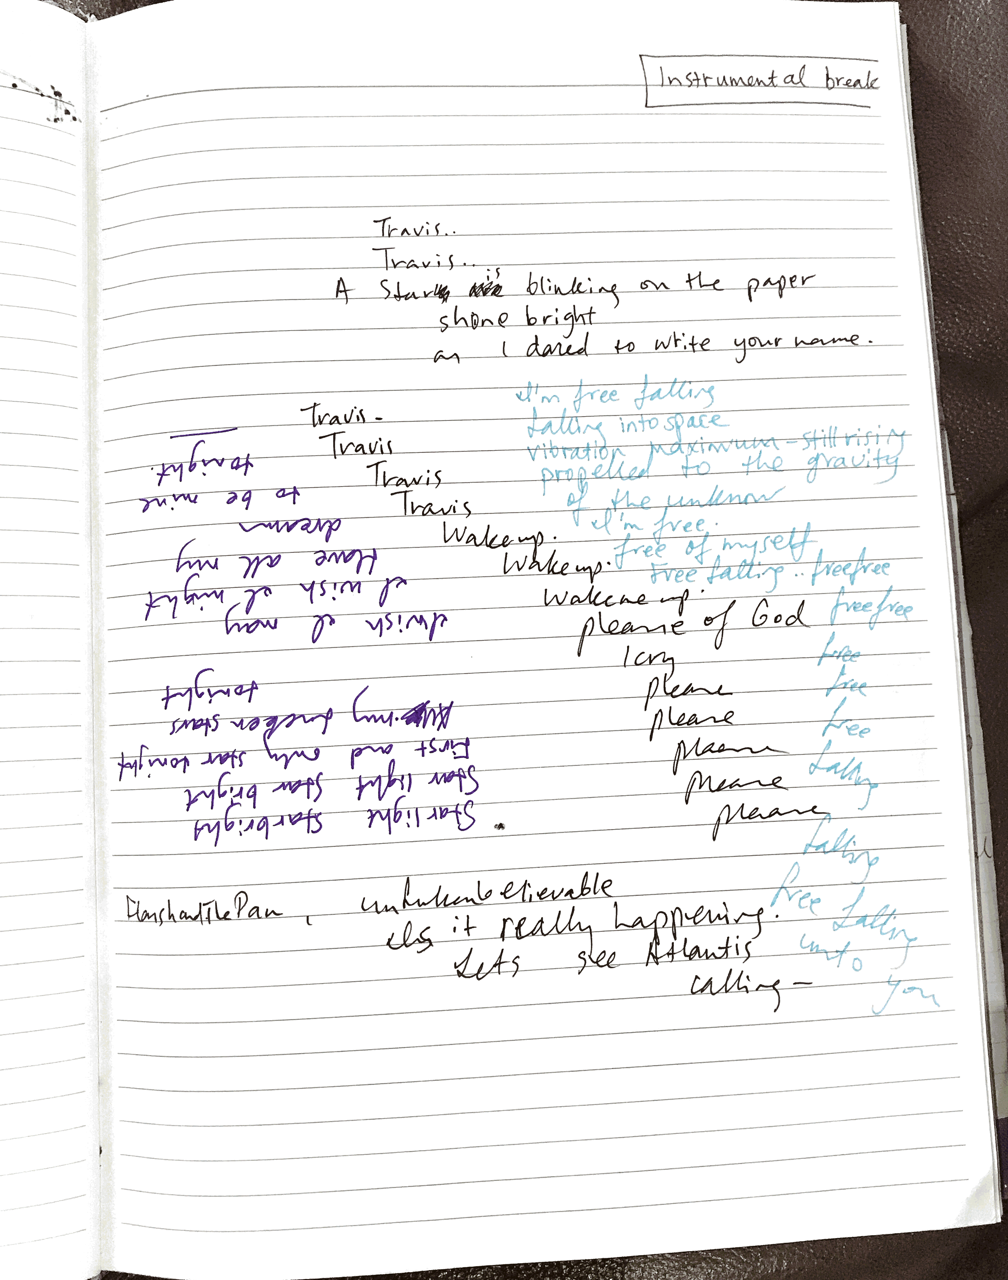 Instrumental break
Travis..
Travis..
A Star is blinking on the paper
shone bright
as I dared to write your name.
Travis -
Travis
Travis
Travis
Wake up.
Wake up.
Wake me up.
please of God
I cry
please
please
please
please
please
I'm free falling
falling into space
vibration maximum - still rising
propelled to the gravity
of the unknow
I'm free.
free of myself
Free falling .. freefree
freefree
free
free
free
falling
falling
free falling
unto
you
Star light Starbright
Star light Star bright
First and only star tonight
my broken stars
tonight
I wish I may
I wish I might
Have all my
dreams
to be mine
tonight.
FlashandThePan,
unbelievable
Is it really happening.
Lets see Atlantis
calling -